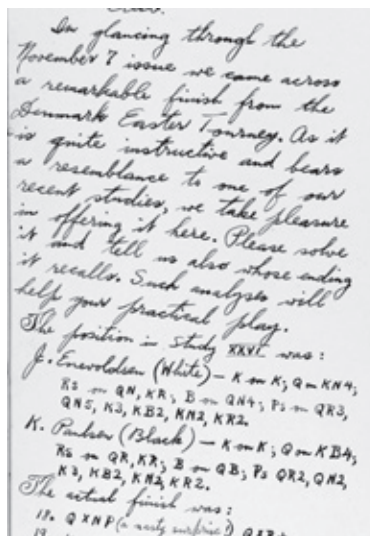 In glancing through the
November 7 issue we came across
a remarkable finish from the
Denmark Easter Tourney. As it
is quite instructive and bears
a resemblance to one of our
recent studies, we take pleasure
in offering it here. Please solve
it and tell us also whose ending
it recalls. Such analyses will
help your practical play.
The position in study XXVI was:
J. Enevoldsen (White) — K on K; Q on KN4;
Rs on QN, KR; B on QN4; Ps on QR3,
QN5, K3, KB2, KN2, KR2.
K. Paulsen (Black) — K on K; Q on KB4;
Rs on QR, KR; B on QB; Ps QR2, QN2,
K3, KB2, KN2, KR2.
The actual finish was:
18. QXNP (a nasty surprise!)